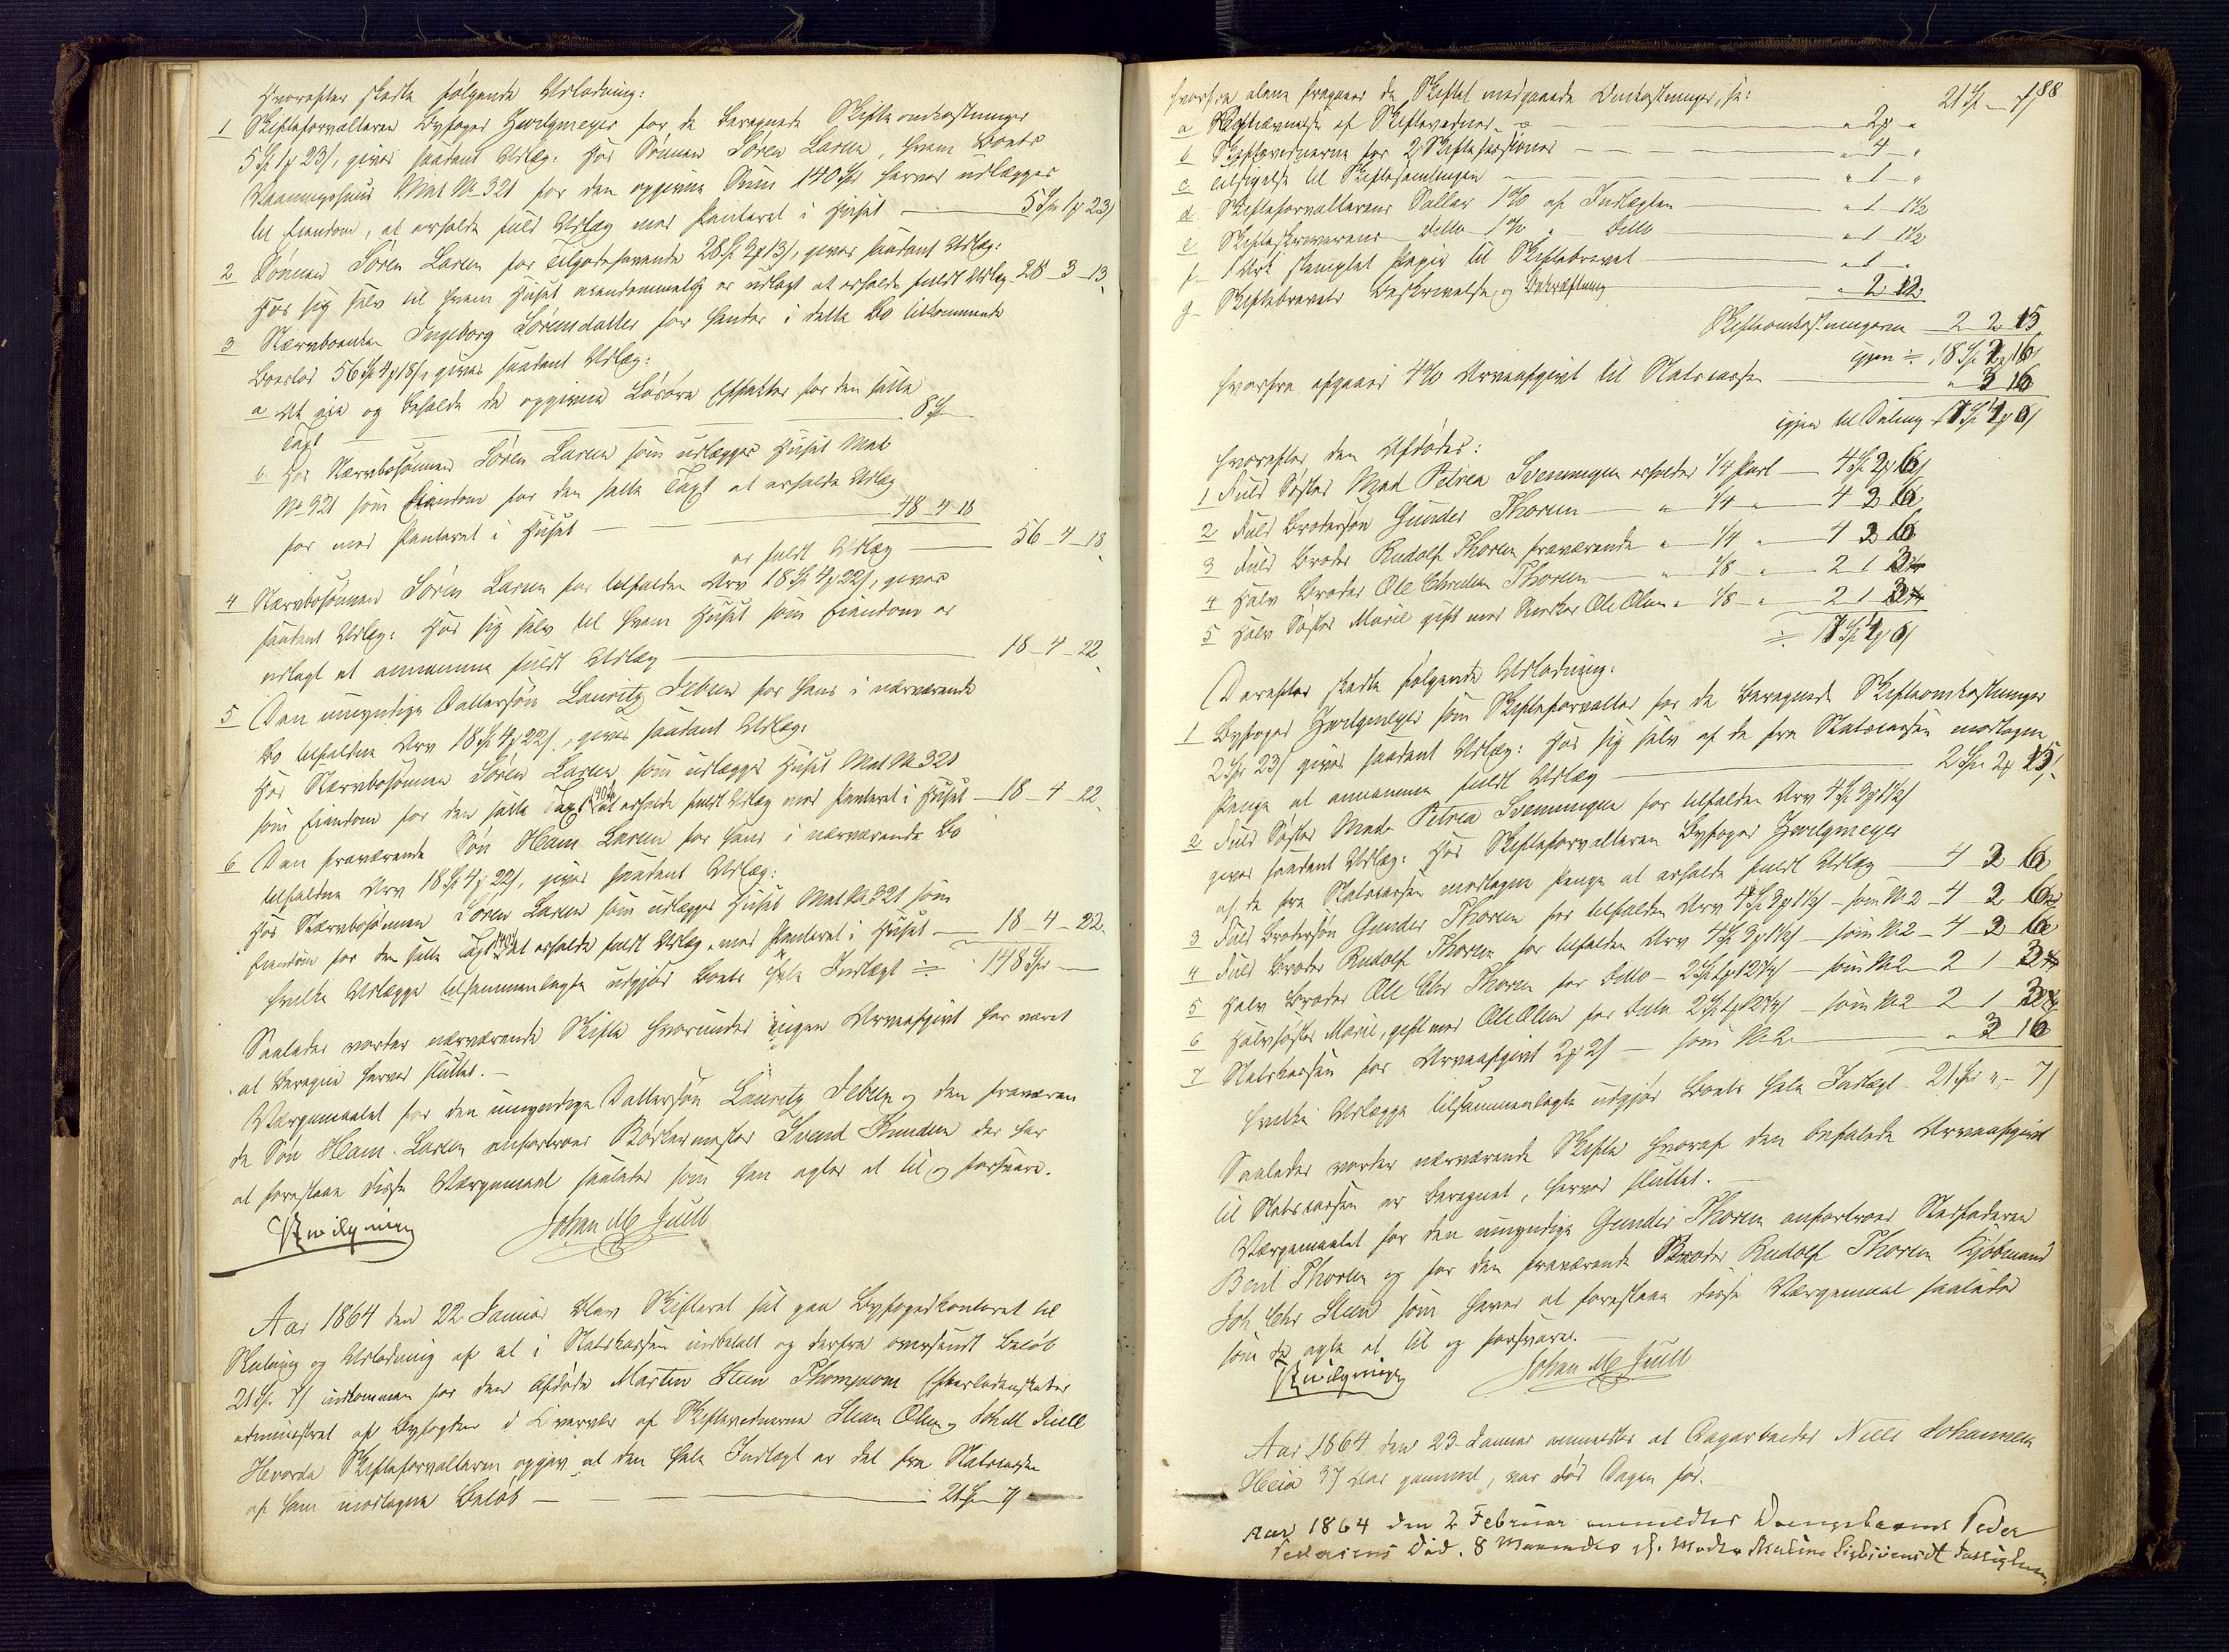 Hvorefter skedte følgende Udlodning:
1 Skifteforvalteren Byfoged Zwilgmeyer for de beregnede Skifteomkostninger
5 Sp 1 ß 23 s, gives saadant Udlæg: Hos Sønnen Søren Larsen, hvem Boets
Vaaningshuus Mat No 321 for den opgivne Sum 140 Spd herved udlægges
til Eiendom, at erholde fuld Udlæg med Panteret i Huset — 5 Sp 1 ß 23 s
2 Sønnen Søren Larsen for Tilgodehavende 28 Sp 3 ß 13 s, gives saadant Udlæg:
Hos sig selv til hvem Huset eiendommelig er udlagt at erholde fuldt Udlæg 28 - 3 - 13
3 Stervboenken Ingeborg Sørensdatter for hendes i dette Bo tilkommende
Boeslod 56 Sp 4 ß 18 s gives saadant Udlæg:
a At eie og beholde de opgivne Løsøre Effecter for den satte
Taxt — 8 Sp —
b. Hos Stervbosønnen Søren Larsen som udlægges Huset Mat
No 321 som Eiendom for den satte Taxt at erholde Udlæg
for med Panteret i Huset — 48 - 4 - 18
er fuldt Udlæg — 56 - 4 - 18
4 Stervbosønnen Søren Larsen for tilfalden Arv 18 Sp 4 ß 22 s, gives
saadant Udlæg: Hos sig selv til hvem Huset som Eiendom er
udlagt at annamme fuldt Udlæg — 18 - 4 - 22
5 Den umyndige Dattersøn Lauritz Jebsen for hans i nærværende
Bo tilfaldne Arv 18 Sp 4 ß 22 s, gives saadant Udlæg:
Hos Stervbosønnen Søren Larsen, som udlægges Huset Mat No 321
som Eiendom for den satte Taxt at erholde fuldt Udlæg med Panteret i Huset — 18 - 4 - 22
6 Den fraværende Søn Hans Larsen for hans i nærværende Bo
tilfaldne Arv 18 Sp 4 ß 22 s, gives saadant Udlæg:
Hos Stervbosønnen Søren Larsen som udlægges Huset Mat No 321 som
Eiendom for den satte Taxt at erholde fuldt Udlæg med Panteret i Huset — 18 - 4 - 22
hvilke Udlægge tilsammenlagte udgjør Boets hele Indtægt = 148 Spd —
Saaledes vorder nærværende Skifte hvorunder ingen Arveafgivt har været
at beregne herved sluttet. —
Værgemaalet for den umyndige Dattersøn Lauritz Jebsen og den fraværen
de Søn Hans Larsen anfortroes Bødkermester Svend Knudsen der har
at forestaae disse Værgemaal saaledes som han agter at til og forsvare.
Zwilgmeyer Johan M Juell
Aar 1864 den 22 Januar blev Skifteret sat paa Byfogedkontoret til
Slutning og Udlodning af et i Statskassen indbetalt og derfra oversendt Beløb
21 Sp 7 s indkommen for den afdøde Martin Steen Thompsons Efterladenskaber
administret af Byfogden i Overvær af Skiftevidnerne Steen Olsen og Joh M Juell
Hvorda Skifteforvalteren opgav at den hele Indtægt er det fra Statscassen
af ham modtagne Beløb — 21 Sp - 7 s
188.
hvorfra alene fragaaer de Skiftet medgaaede Omkostninger, sc: 21 Sp — 7 s
a Opnævnelse af Skiftevidner — " 2 ß "
b Skiftevidnerne for 2 Skiftesessioner — " 4 "
c Tilsigelse til Skiftesamlingen — " 1 - "
d Skifteforvalterens Sallar 1% af Indtægten — " 1 1½
e Skifteskriverens ditto 1% " Ditto — " 1 1½
f 1 Ark stemplet Papir til Skiftebrevet — " 1 - "
g Skiftebrevets Beskrivelse og Bekræftning — " 2 12
Skifteomkostningerne — 2 2 15
igjen = 18 Sp 2 ß 16 s
hvorfra afgaaer 4% Arveafgivt til Statscassen — " 3 16
igjen til Deling 17 Sp 4 ß 0 s
hvorefter den Afdødes:
1 Fuld Søster Mad Petrea Svenningsen erholder 1/4 Part — 4 Sp 2 ß 6 s
2 Fuld Brodersøn Gunder Thorsen — " 1/4 " — 4 2 6
3 Fuld Broder Rudolf Thorsen fraværende " 1/4 " — 4 2 6
4 Halv Broder Ole Christian Thorsen — " 1/8 " — 2 1 3
5 Halv Søster Marie gift med Snedker Ole Olsen " 1/8 " — 2 1 3
= 17 Sp 4 ß 0 s
Derefter skedte følgende Udlodning:
1 Byfoged Zwilgmeyer som Skifteforvalter for de beregnede Skifteomkostninger
2 Sp 23 s gives saadant Udlæg: Hos sig selv af de fra Statscassen modtagne
Penge at annamme fuldt Udlæg — 2 Sp 2 ß 15 s
2 Fuld Søster Mad Petrea Svenningsen for tilfalden Arv 4 Sp 2 ß 1½ s
gives saadant Udlæg: Hos Skifteforvalteren Byfoged Zwilgmeyer
af de fra Statscassen modtagne Penge at erholde fuldt Udlæg — 4 2 6
3 Fuld Brodersøn Gunder Thorsen for tilfalden Arv 4 Sp 2 ß 1½ s — som No 2 — 4 - 2 6
4 Fuld Broder Rudolf Thorsen for tilfalden Arv 4 Sp 2 ß 1½ s — som No 2 — 4 - 2 6
5 Halv Broder Ole Chr Thorsen for ditto — som No 2 — 2 1 3
6 Halvsøster Marie, gift med Ole Olsen for ditto — som No 2 2 1 3
7 Statskassen for Arveafgivt 2 ß 2 s — som No 2 — " 3 16
hvilke Udlægge tilsammenlagte udgjør Boets hele Indtægt 21 Sp " - 7 s
Saaledes vorder nærværende Skifte hvoraf den befalede Arveafgivt
til Statscassen er beregnet, herved sluttet. —
Værgemaalet for den umyndige Gunder Thorsen anfortroes Stedfaderen
Bent Thorsen og for den fraværende Broder Rudolf Thorsen Kjøbmand
Joh Chr Steen som haver at forestaae disse Værgemaal saaledes
som de agte at til og forsvare. —
Zwilgmeyer Johan M Juell
Aar 1864 den 23 Januar anmeldtes at Dagarbeider Niels Johannesen
Heia 37 Aar gammel, var død Dagen før.
Aar 1864 den 2 Februar anmeldtes Drengebarnet Peder
Pedersens Død. 8 Maaneder gl. Moder